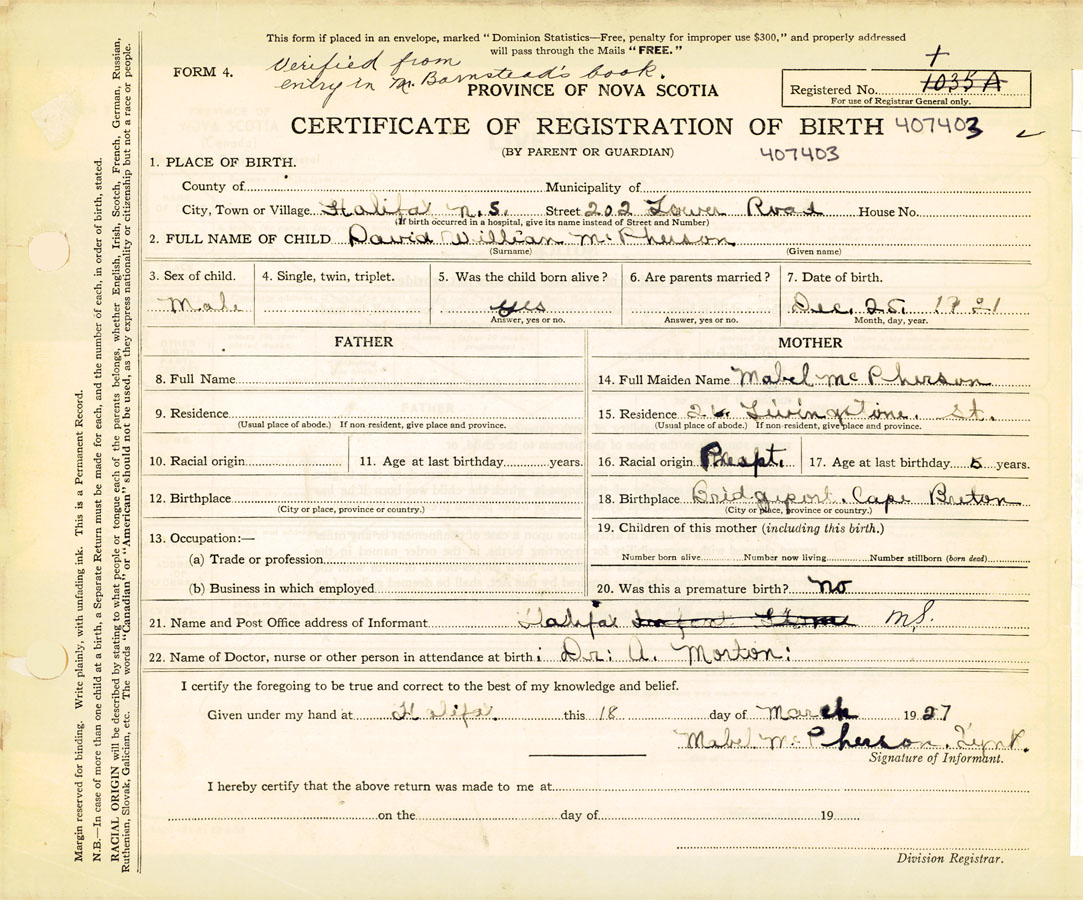 This form if placed in an envelope, marked "Dominion Statistics—Free, penalty for improper use $300," and properly addressed
will pass through the Mails "FREE."
Verified from
entry in Mr. Barnstead's book.
FORM 4.
PROVINCE OF NOVA SCOTIA
Registered No. 1035 A
For use of Registrar General only.
CERTIFICATE OF REGISTRATION OF BIRTH 407403
(BY PARENT OR GUARDIAN) 407403
1. PLACE OF BIRTH.
County of Municipality of
City, Town or Village Halifax N.S. Street 202 Tower Road House No.
(If birth occurred in a hospital, give its name instead of Street and Number)
2. FULL NAME OF CHILD David William McPherson
(Surname) (Given name)
3. Sex of child. 4. Single, twin, triplet. 5. Was the child born alive? 6. Are parents married? 7. Date of birth.
Male yes Dec. 25. 1921
Answer, yes or no. Answer, yes or no. Month, day, year.
FATHER MOTHER
8. Full Name 14. Full Maiden Name Mabel McPherson
9. Residence 15. Residence Livingstone. St.
(Usual place of abode.) If non-resident, give place and province. (Usual place of abode.) If non-resident, give place and province.
10. Racial origin 11. Age at last birthday years. 16. Racial origin 17. Age at last birthday years.
12. Birthplace 18. Birthplace Bridgeport. Cape Breton
(City or place, province or country.) (City or place, province or country.)
19. Children of this mother (including this birth.)
13. Occupation:—
(a) Trade or profession Number born alive Number now living Number stillborn (born dead)
(b) Business in which employed 20. Was this a premature birth? no
21. Name and Post Office address of Informant Halifax N.S.
22. Name of Doctor, nurse or other person in attendance at birth: Dr: A. Morton:
I certify the foregoing to be true and correct to the best of my knowledge and belief.
Given under my hand at Halifax. this 18 day of March 1927
Mabel McPherson. Lynk.
Signature of Informant.
I hereby certify that the above return was made to me at
on the day of 19
Division Registrar.
Margin reserved for binding. Write plainly, with unfading ink. This is a Permanent Record.
N.B.—In case of more than one child at a birth, a Separate Return must be made for each, and the number of each, in order of birth, stated.
RACIAL ORIGIN will be described by stating to what people or tongue each of the parents belongs, whether English, Irish, Scotch, French, German, Russian,
Ruthenian, Slovak, Galician, etc. The words "Canadian" or "American" should not be used, as they express nationality or citizenship but not a race or people.